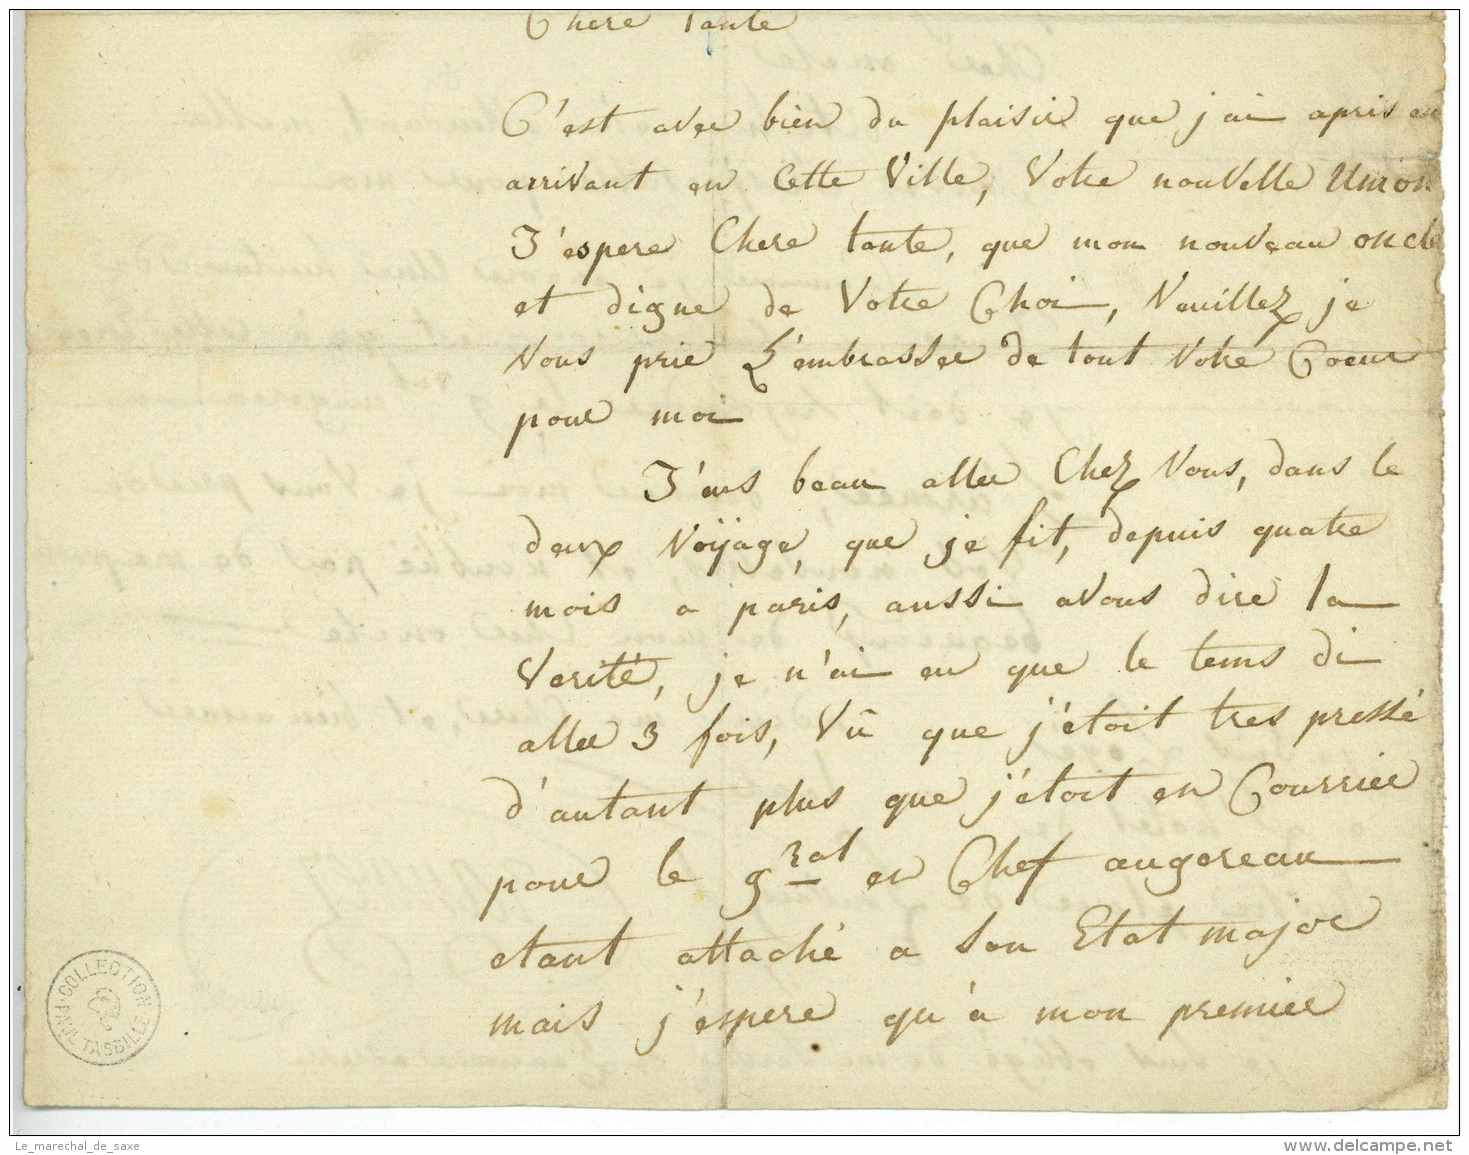 Chere tante
C'est avec bien du plaisir que j'ai apris en
arrivant en cette Ville, Votre nouvelle Union
J'espere Chere tante, que mon nouveau oncle
et digne de Votre Choi, Veuillez je
Vous prie L'embrasser de tout Votre Coeur
pour moi
J'eus beau aller Chez Vous, dans le
deux Voÿage, que je fit, depuis quatre
mois a paris, aussi avous dire la
Verité, je n'ai eu que le tems di
aller 3 fois, Vû que j'étoit tres pressé
d'autant plus que j'étoit en Courrier
pour le gral en Chef augereau
etant attaché a Son Etat major
mais j'espere qu'à mon premier
COLLECTION PAUL TASSILLE
Le_marechal_de_saxe
www.delcampe.net